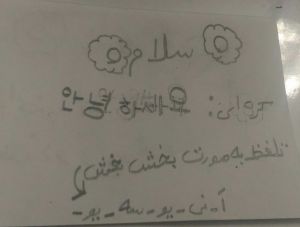 سلام
کره‌ای: 안녕하세요
تلفظ به صورت بخش بخش
آ-نی-یو-سه-یو-